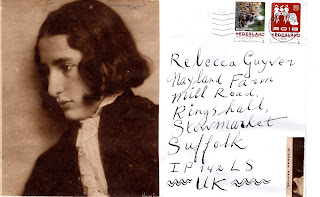 NEDERLAND
NEDERLAND
2018
Rebecca Guyver
Nayland Farm
Mill Road,
Ringshall,
Stowmarket
Suffolk
IP142LS
UK